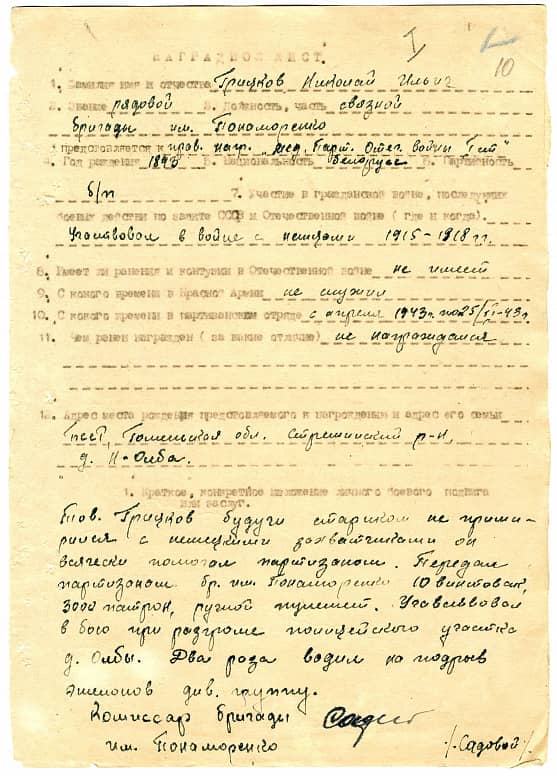 I
10
НАГРАДНОЙ ЛИСТ
1. Фамилия имя и отчество Грицков Николай Ильич
2. Звание рядовой 3. Должность, часть связной
бригады им. Пономаренко
Представляется к прав. нагр. "мед. Парт. Отеч. войны I ст"
4. Год рождения 5. Национальность беларусс 6. Партийность
б/п 7. Участие в гражданской войне, последующих
боевых действий по защите СССР и Отечественной войне ( где и когда).
Участвовал в войне с немцами 1915-1918 гг.
8. Имеет ли ранения и контузии в Отечественной войне не имеет
9. С какого времени в Красной Армии не служил
10. С какого времени в партизанском отряде с апреля 1943г. по 25/XI-43г.
11. Чем ранее награжден ( за какие отличие) не награждался
12. Адрес места рождения представляемого к награждению и адрес его семьи
БССР, Гомельская обл. Стрешинский р-н
д. Н-Олба.
1. Краткое, конкретное изложение личного боевого подвига
или заслуг.
Тов. Грицков будучи стариком не прими-
рился с немецкими захватчиками он
всячески помогал партизанам. Передал
партизанам бр. им. Пономаренко 10 винтовок,
3000 патрон, ручной пулемет. Участвовал
в бою при разгроме полицейского участка
д. Олбы. Два раза водил на подрыв
эшелонов див. группу.
Комиссар бригады
им. Пономаренко /Садовой/